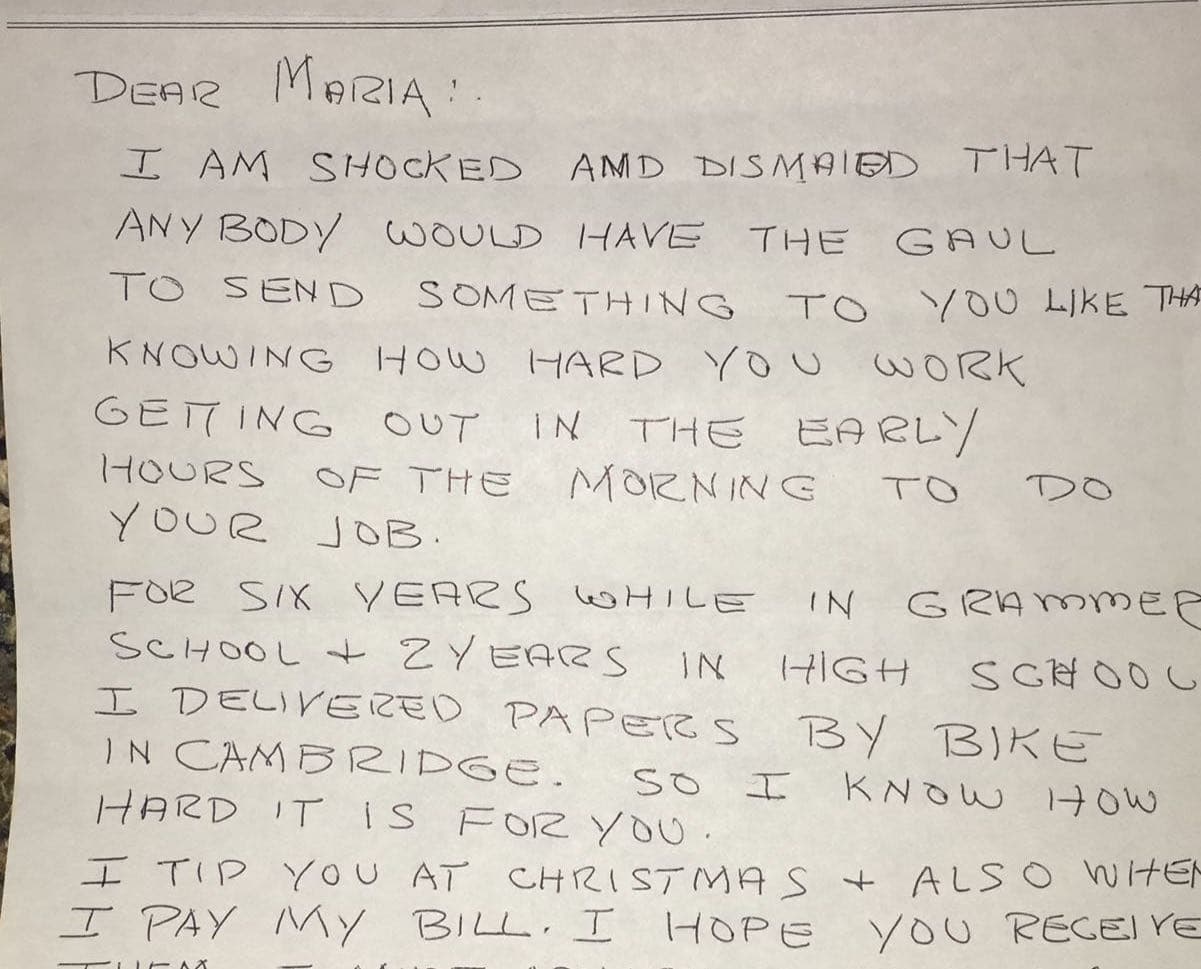 DEAR MARIA:
I AM SHOCKED AMD DISMAIED THAT
ANY BODY WOULD HAVE THE GAUL
TO SEND SOMETHING TO YOU LIKE THA
KNOWING HOW HARD YOU WORK
GETTING OUT IN THE EARLY
HOURS OF THE MORNING TO DO
YOUR JOB.
FOR SIX YEARS WHILE IN GRAMMER
SCHOOL + 2 YEARS IN HIGH SCHOOL
I DELIVERED PAPERS BY BIKE
IN CAMBRIDGE. SO I KNOW HOW
HARD IT IS FOR YOU.
I TIP YOU AT CHRISTMAS + ALSO WHEN
I PAY MY BILL. I HOPE YOU RECEIVE